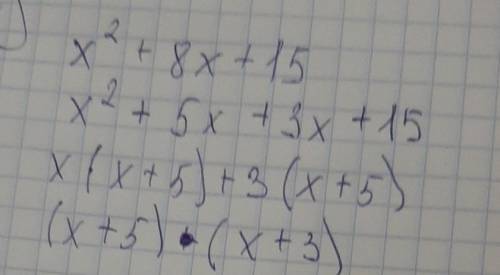 x² + 8x + 15
x² + 5x + 3x + 15
x(x+5)+3(x+5)
(x+5)•(x+3)